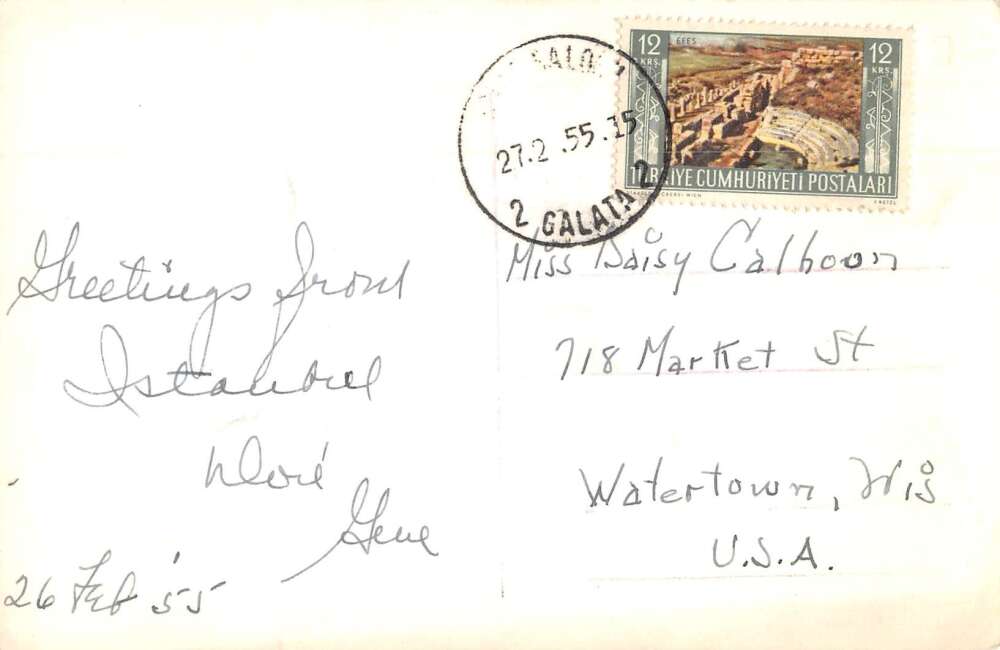 12 KRŞ.
EFES
12 KRŞ.
TÜRKİYE CUMHURİYETİ POSTALARI
27.2.55.15
2 GALATA 2
Greetings from
Istanbul
Gene
26 Feb '55
Miss Daisy Calhoon
718 Market St
Watertown, Wis
U.S.A.